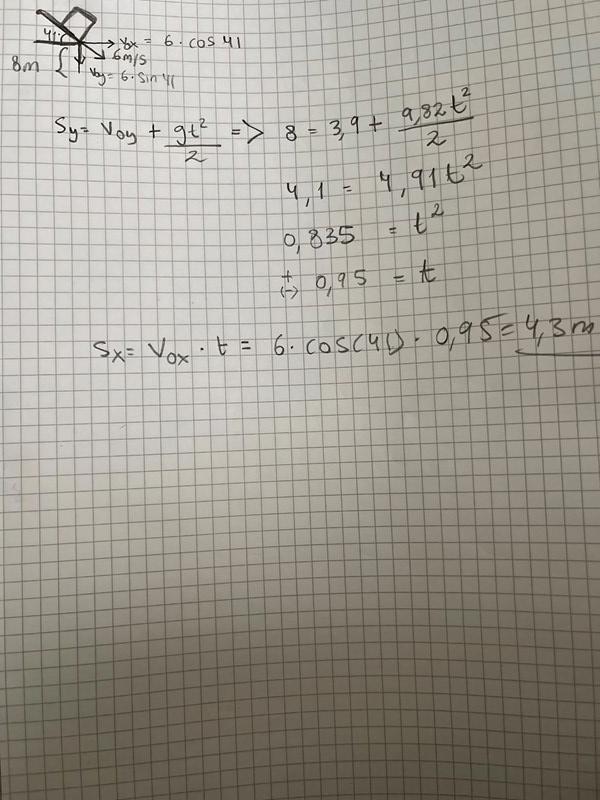 41° v₀ₓ = 6 · cos 41
6m/s
8m { v₀y = 6 · sin 41
Sy = V₀y + gt²/2 => 8 = 3,9 + 9,82t²/2
4,1 = 4,91t²
0,835 = t²
+(-) 0,95 = t
Sx = V₀x · t = 6 · cos(41) · 0,95 = 4,3 m